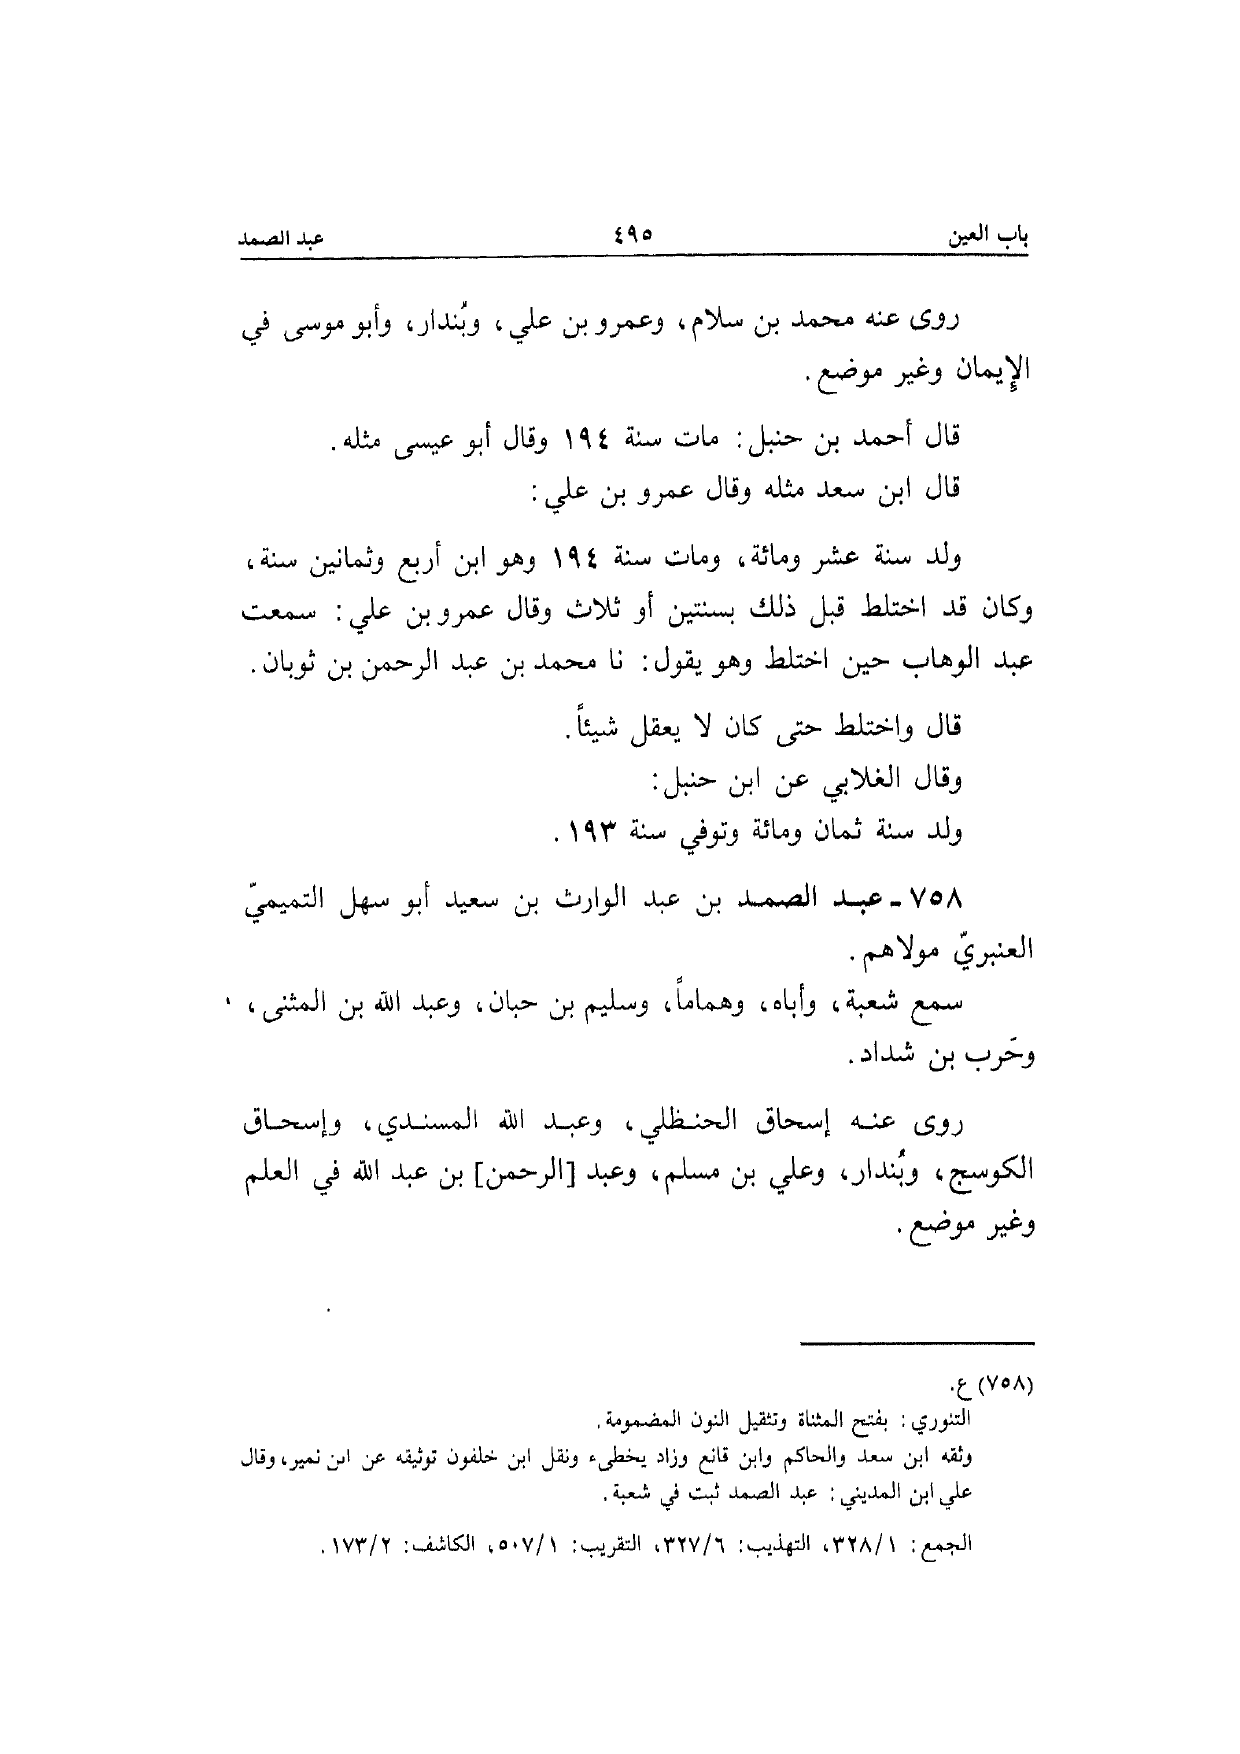 باب العين ٤٩٥ عبد الصمد
روى عنه محمد بن سلام، وعمرو بن علي، وبُندار، وأبو موسى في
الإيمان وغير موضع.
قال أحمد بن حنبل: مات سنة ١٩٤ وقال أبو عيسى مثله.
قال ابن سعد مثله وقال عمرو بن علي:
ولد سنة عشر ومائة، ومات سنة ١٩٤ وهو ابن أربع وثمانين سنة،
وكان قد اختلط قبل ذلك بسنتين أو ثلاث وقال عمرو بن علي: سمعت
عبد الوهاب حين اختلط وهو يقول: نا محمد بن عبد الرحمن بن ثوبان.
قال واختلط حتى كان لا يعقل شيئاً.
وقال الغلابي عن ابن حنبل:
ولد سنة ثمان ومائة وتوفي سنة ١٩٣.
٧٥٨ - عبد الصمد بن عبد الوارث بن سعيد أبو سهل التميميّ
العنبريّ مولاهم.
سمع شعبة، وأباه، وهماماً، وسليم بن حبان، وعبد الله بن المثنى،
وحَرب بن شداد.
روى عنه إسحاق الحنظلي، وعبد الله المسندي، وإسحاق
الكوسج، وبُندار، وعلي بن مسلم، وعبد [الرحمن] بن عبد الله في العلم
وغير موضع.
(٧٥٨) ع.
التنوري: بفتح المثناة وتثقيل النون المضمومة.
وثقه ابن سعد والحاكم وابن قانع وزاد يخطىء ونقل ابن خلفون توثيقه عن ابن نمير، وقال
علي ابن المديني: عبد الصمد ثبت في شعبة.
الجمع: ٣٢٨/١، التهذيب: ٣٢٧/٦، التقريب: ٥٠٧/١، الكاشف: ١٧٣/٢.